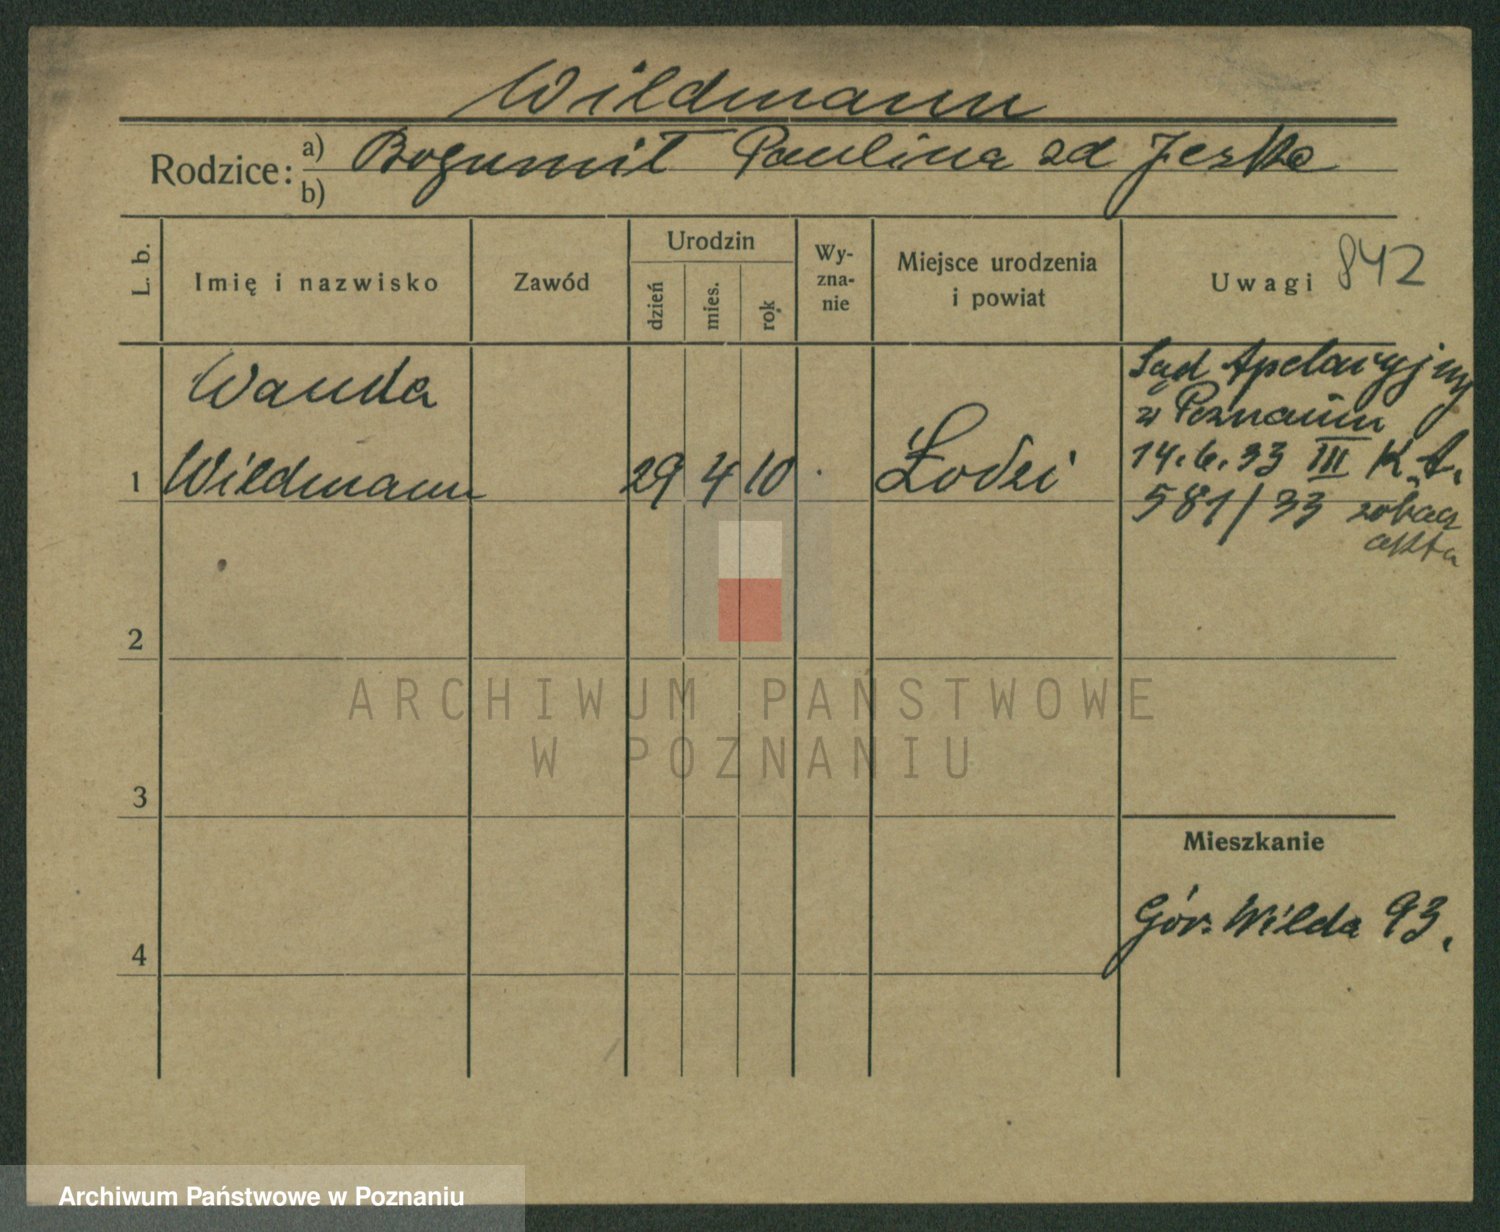 Wildmann
Rodzice: a) Bogumił Paulina zd Jeske
b)
L. b.
Imię i nazwisko
Zawód
Urodzin
dzień
mies.
rok
Wy-
zna-
nie
Miejsce urodzenia
i powiat
Uwagi 842
Wanda
1 Wildmann 29 4 10 Łodzi
Sąd Apelacyjny
w Poznaniu
14.6.33 III K.A.
581/33 zobacz
akta
2
3
4
Mieszkanie
Gór. Wilda 93.
ARCHIWUM PAŃSTWOWE
W POZNANIU
Archiwum Państwowe w Poznaniu